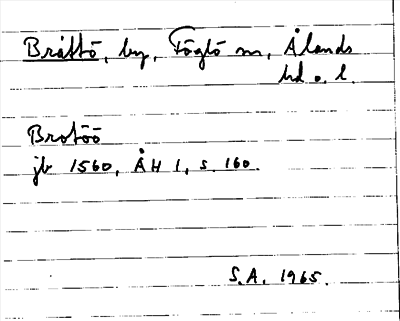 Bråttö, by, Föglö sn, Ålands
hd o. l.
Brotöö
jb 1560, ÅH 1, s. 160.
S.A. 1965.